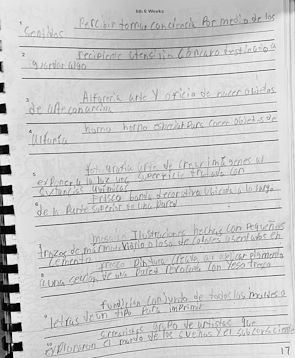 6th 6 Weeks
1 Percibir tomar conciencia Por medio de los
Sentidos
2 recipiente utensilio concavo destinado a
guardar algo
3 Alfareria arte y oficio de hacer objetos
de arte con arcilla
4 horno horno especial Para cocer objetos de
alfareria
5 fotografia arte de crear imagenes al
exponer a la luz una superficie tratada con
sustancias quimicas
6 Frisco banda decorativa ubicada a lo largo
de la Parte superior de una pared
7 mosaico Ilustraciones hechas con Pequeños
trozos de vidrio o losa de colores asentados en
cemento
8 fresco Pintura creada al aplicar pigmento
a una sección de una Pared revocada con yeso fresco
9 fundicion conjunto de todos los moldes o
letras de un tipo Para imprimir
10 surrealistas grupo de artistas que
exploraron el mundo de los sueños y el subconsciente
17